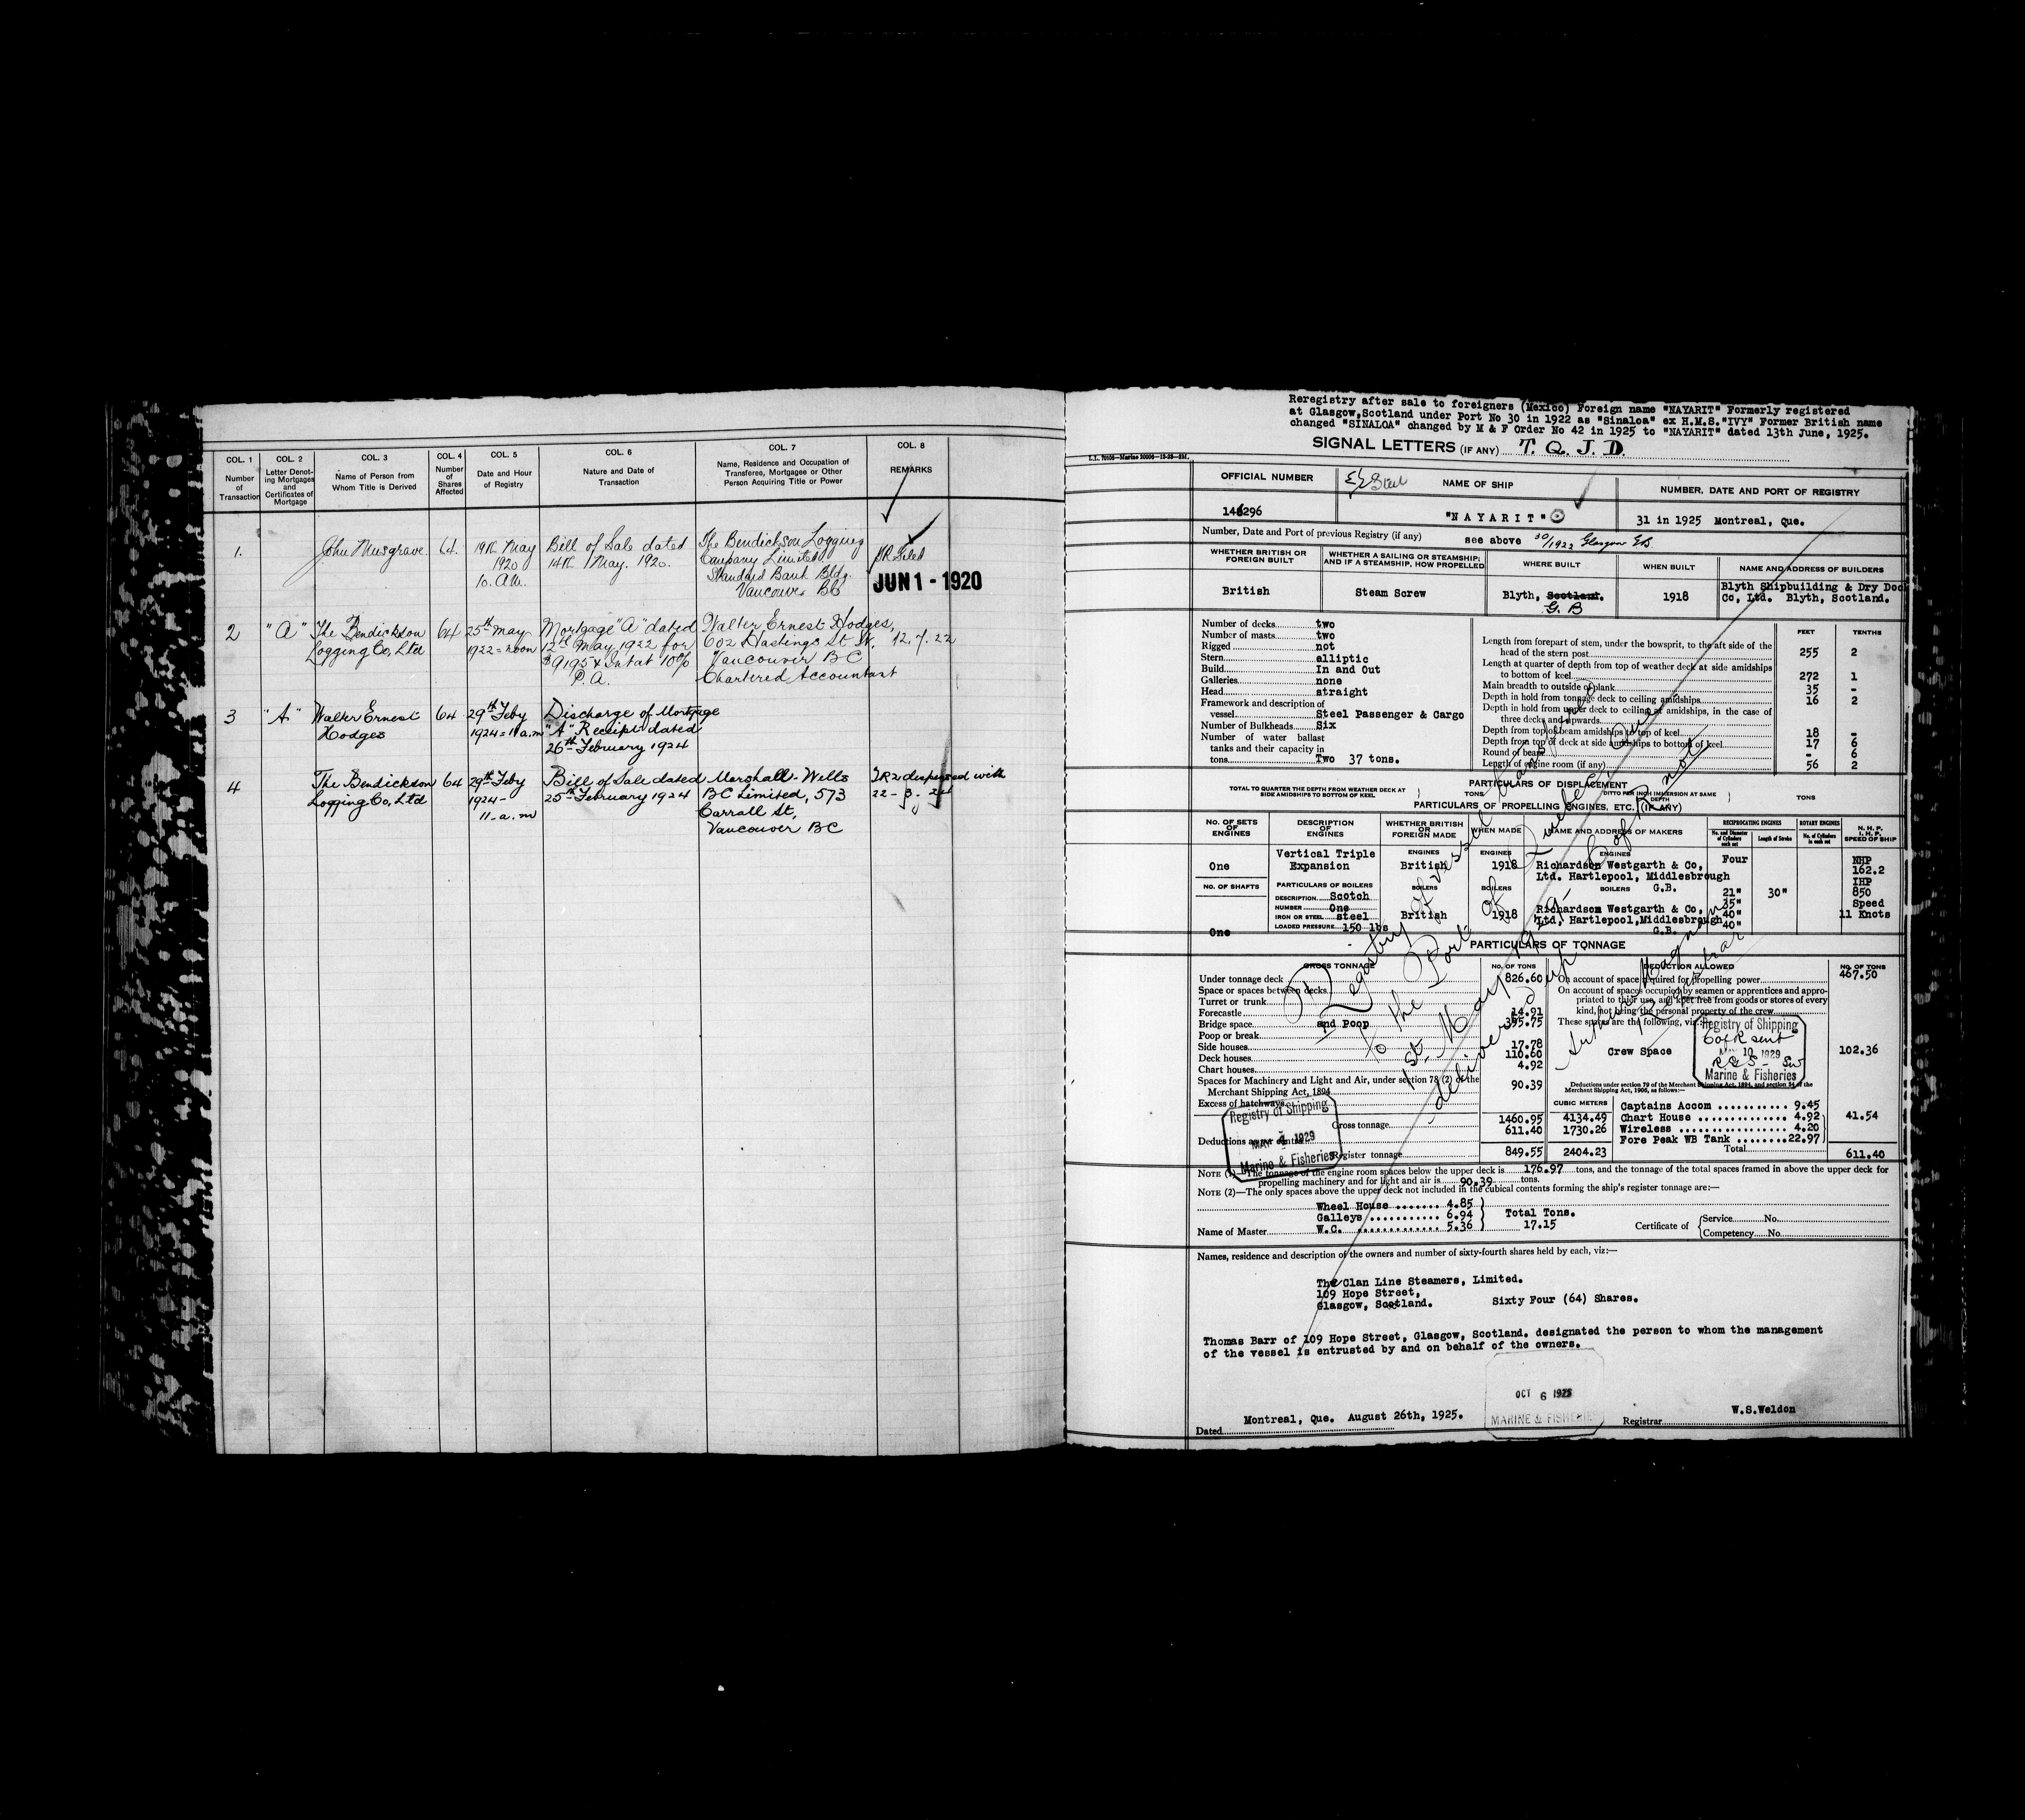 COL. 1
Number
of
Transaction
COL. 2
Letter Denot-
ing Mortgages
and
Certificates of
Mortgage
COL. 3
Name of Person from
Whom Title is Derived
COL. 4
Number
of
Shares
Affected
COL. 5
Date and Hour
of Registry
COL. 6
Nature and Date of
Transaction
COL. 7
Name, Residence and Occupation of
Transferee, Mortgagee or Other
Person Acquiring Title or Power
COL. 8
REMARKS
1. John Musgrave 64 19th May Bill of Sale dated The Bendickson Logging
1920 14th May. 1920. Company Limited
10. A.M. Standard Bank Bldg.
Vancouver BC
JUN 1 - 1920
2 "A" The Bendickson 64 25th May Mortgage "A" dated Walter Ernest Hodges,
Logging Co, Ltd 1922 = noon 12th May, 1922 for 602 Hastings St W. 12. 7. 22
$9195 & Int at 10% Vancouver BC
P.A. Chartered Accountant
3 "A" Walter Ernest 64 29th Feby Discharge of Mortgage
Hodges 1924 = 11 a.m "A" Receipt dated
26th February 1924
4 The Bendickson 64 29th Feby Bill of Sale dated Marshall-Wells dispensed with
Logging Co, Ltd 1924 - 25th February 1924 BC Limited, 573 22 - 3 - 24
11 - a. m Carrall St,
Vancouver BC
Reregistry after sale to foreigners (Mexico) Foreign name "NAYARIT" Formerly registered
at Glasgow, Scotland under Port No 30 in 1922 as "Sinaloa" ex H.M.S. "IVY" Former British name
changed "SINALOA" changed by M & F Order No 42 in 1925 to "NAYARIT" dated 13th June, 1925.
SIGNAL LETTERS (IF ANY) T. Q. J. D.
OFFICIAL NUMBER
NAME OF SHIP
NUMBER, DATE AND PORT OF REGISTRY
Steel
146296
"NAYARIT"
31 in 1925 Montreal, Que.
Number, Date and Port of previous Registry (if any) see above 30/1922 Glasgow
WHETHER BRITISH OR
FOREIGN BUILT
WHETHER A SAILING OR STEAMSHIP;
AND IF A STEAMSHIP, HOW PROPELLED
WHERE BUILT
WHEN BUILT
NAME AND ADDRESS OF BUILDERS
British
Steam Screw
Blyth, Scotland.
G. B
1918
Blyth Shipbuilding & Dry Doc
Co, Ltd. Blyth, Scotland.
Number of decks two
Number of masts two
Rigged not
Stern elliptic
Build In and Out
Galleries none
Head straight
Framework and description of
vessel Steel Passenger & Cargo
Number of Bulkheads Six
Number of water ballast
tanks and their capacity in
tons Two 37 tons.
FEET TENTHS
Length from forepart of stem, under the bowsprit, to the aft side of the
head of the stern post 255 2
Length at quarter of depth from top of weather deck at side amidships
to bottom of keel 272 1
Main breadth to outside of plank 35 -
Depth in hold from tonnage deck to ceiling amidships 16 2
Depth in hold from upper deck to ceiling at amidships, in the case of
three decks and upwards
Depth from top of beam amidships to top of keel 18 -
Depth from top of deck at side amidships to bottom of keel 17 6
Round of beam - 6
Length of engine room (if any) 56 2
PARTICULARS OF DISPLACEMENT
TOTAL TO QUARTER THE DEPTH FROM WEATHER DECK AT
SIDE AMIDSHIPS TO BOTTOM OF KEEL
TONS
DITTO PER INCH IMMERSION AT SAME
DEPTH
TONS
PARTICULARS OF PROPELLING ENGINES, ETC. (IF ANY)
NO. OF SETS
OF
ENGINES
DESCRIPTION
OF
ENGINES
WHETHER BRITISH
OR
FOREIGN MADE
WHEN MADE
NAME AND ADDRESS OF MAKERS
RECIPROCATING ENGINES
No. and Diameter
of Cylinders
each set
Length of Stroke
ROTARY ENGINES
No. of Cylinders
in each set
N. H. P.
I. H. P.
SPEED OF SHIP
One
Vertical Triple
Expansion
ENGINES
British
ENGINES
1918
ENGINES
Richardson Westgarth & Co,
Ltd. Hartlepool, Middlesbrough
G.B.
Four
21"
35"
40"
40"
30"
NHP
162.2
IHP
850
Speed
11 Knots
NO. OF SHAFTS
One
PARTICULARS OF BOILERS
DESCRIPTION Scotch
NUMBER One
IRON OR STEEL steel
LOADED PRESSURE 150 lbs
BOILERS
British
BOILERS
1918
BOILERS
Richardson Westgarth & Co,
Ltd, Hartlepool, Middlesbrough
G.B.
PARTICULARS OF TONNAGE
GROSS TONNAGE NO. OF TONS
Under tonnage deck 826.60
Space or spaces between decks
Turret or trunk
Forecastle 14.91
Bridge space and Poop 395.75
Poop or break
Side houses 17.78
Deck houses 110.60
Chart houses 4.92
Spaces for Machinery and Light and Air, under section 78 (2) of the
Merchant Shipping Act, 1894 90.39
Excess of hatchways
CUBIC METERS
Gross tonnage 1460.95 4134.49
Deductions as per contra 611.40 1730.26
Register tonnage 849.55 2404.23
DEDUCTION ALLOWED NO. OF TONS
On account of space required for propelling power 467.50
On account of spaces occupied by seamen or apprentices and appro-
priated to their use, and kept free from goods or stores of every
kind, not being the personal property of the crew
These spaces are the following, viz:
Crew Space 102.36
Deductions under section 79 of the Merchant Shipping Act, 1894, and section 54 of the
Merchant Shipping Act, 1906, as follows:—
Captains Accom 9.45
Chart House 4.92 41.54
Wireless 4.20
Fore Peak WB Tank 22.97
Total 611.40
Registry of Shipping
C of R sent
MAY 10 1929
Marine & Fisheries
Registry of Shipping
MAY 4 1929
Marine & Fisheries
Registry of vessel transferred
to the Port of Quebec, Que
1st May 1929. C of R not
delivered up
Registrar
NOTE (1)—The tonnage of the engine room spaces below the upper deck is 176.97 tons, and the tonnage of the total spaces framed in above the upper deck for
propelling machinery and for light and air is 90.39 tons.
NOTE (2)—The only spaces above the upper deck not included in the cubical contents forming the ship's register tonnage are:—
Wheel House 4.85
Galleys 6.94 Total Tons.
W.C. 5.36 17.15
Name of Master
Certificate of Service No.
Competency No
Names, residence and description of the owners and number of sixty-fourth shares held by each, viz:—
The Clan Line Steamers, Limited.
109 Hope Street,
Glasgow, Scotland. Sixty Four (64) Shares.
Thomas Barr of 109 Hope Street, Glasgow, Scotland. designated the person to whom the management
of the vessel is entrusted by and on behalf of the owners.
OCT 6 1925
MARINE & FISHERIES
Dated Montreal, Que. August 26th, 1925.
Registrar W.S.Weldon